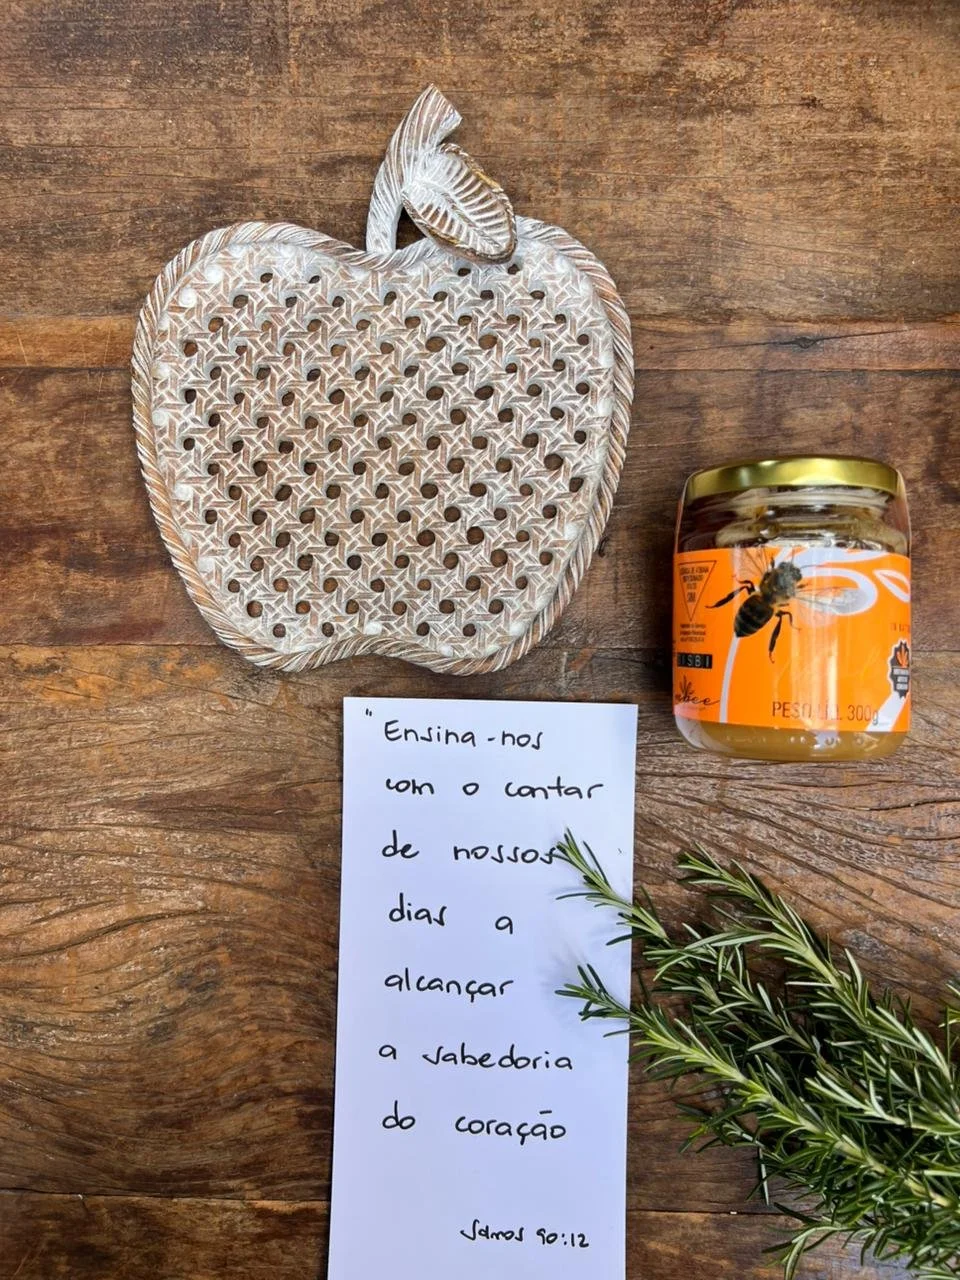 " Ensina-nos
com o contar
de nossos
dias a
alcançar
a sabedoria
do coração
Salmos 90:12
SIM
SISBI
bee
PESO LÍQ. 300g